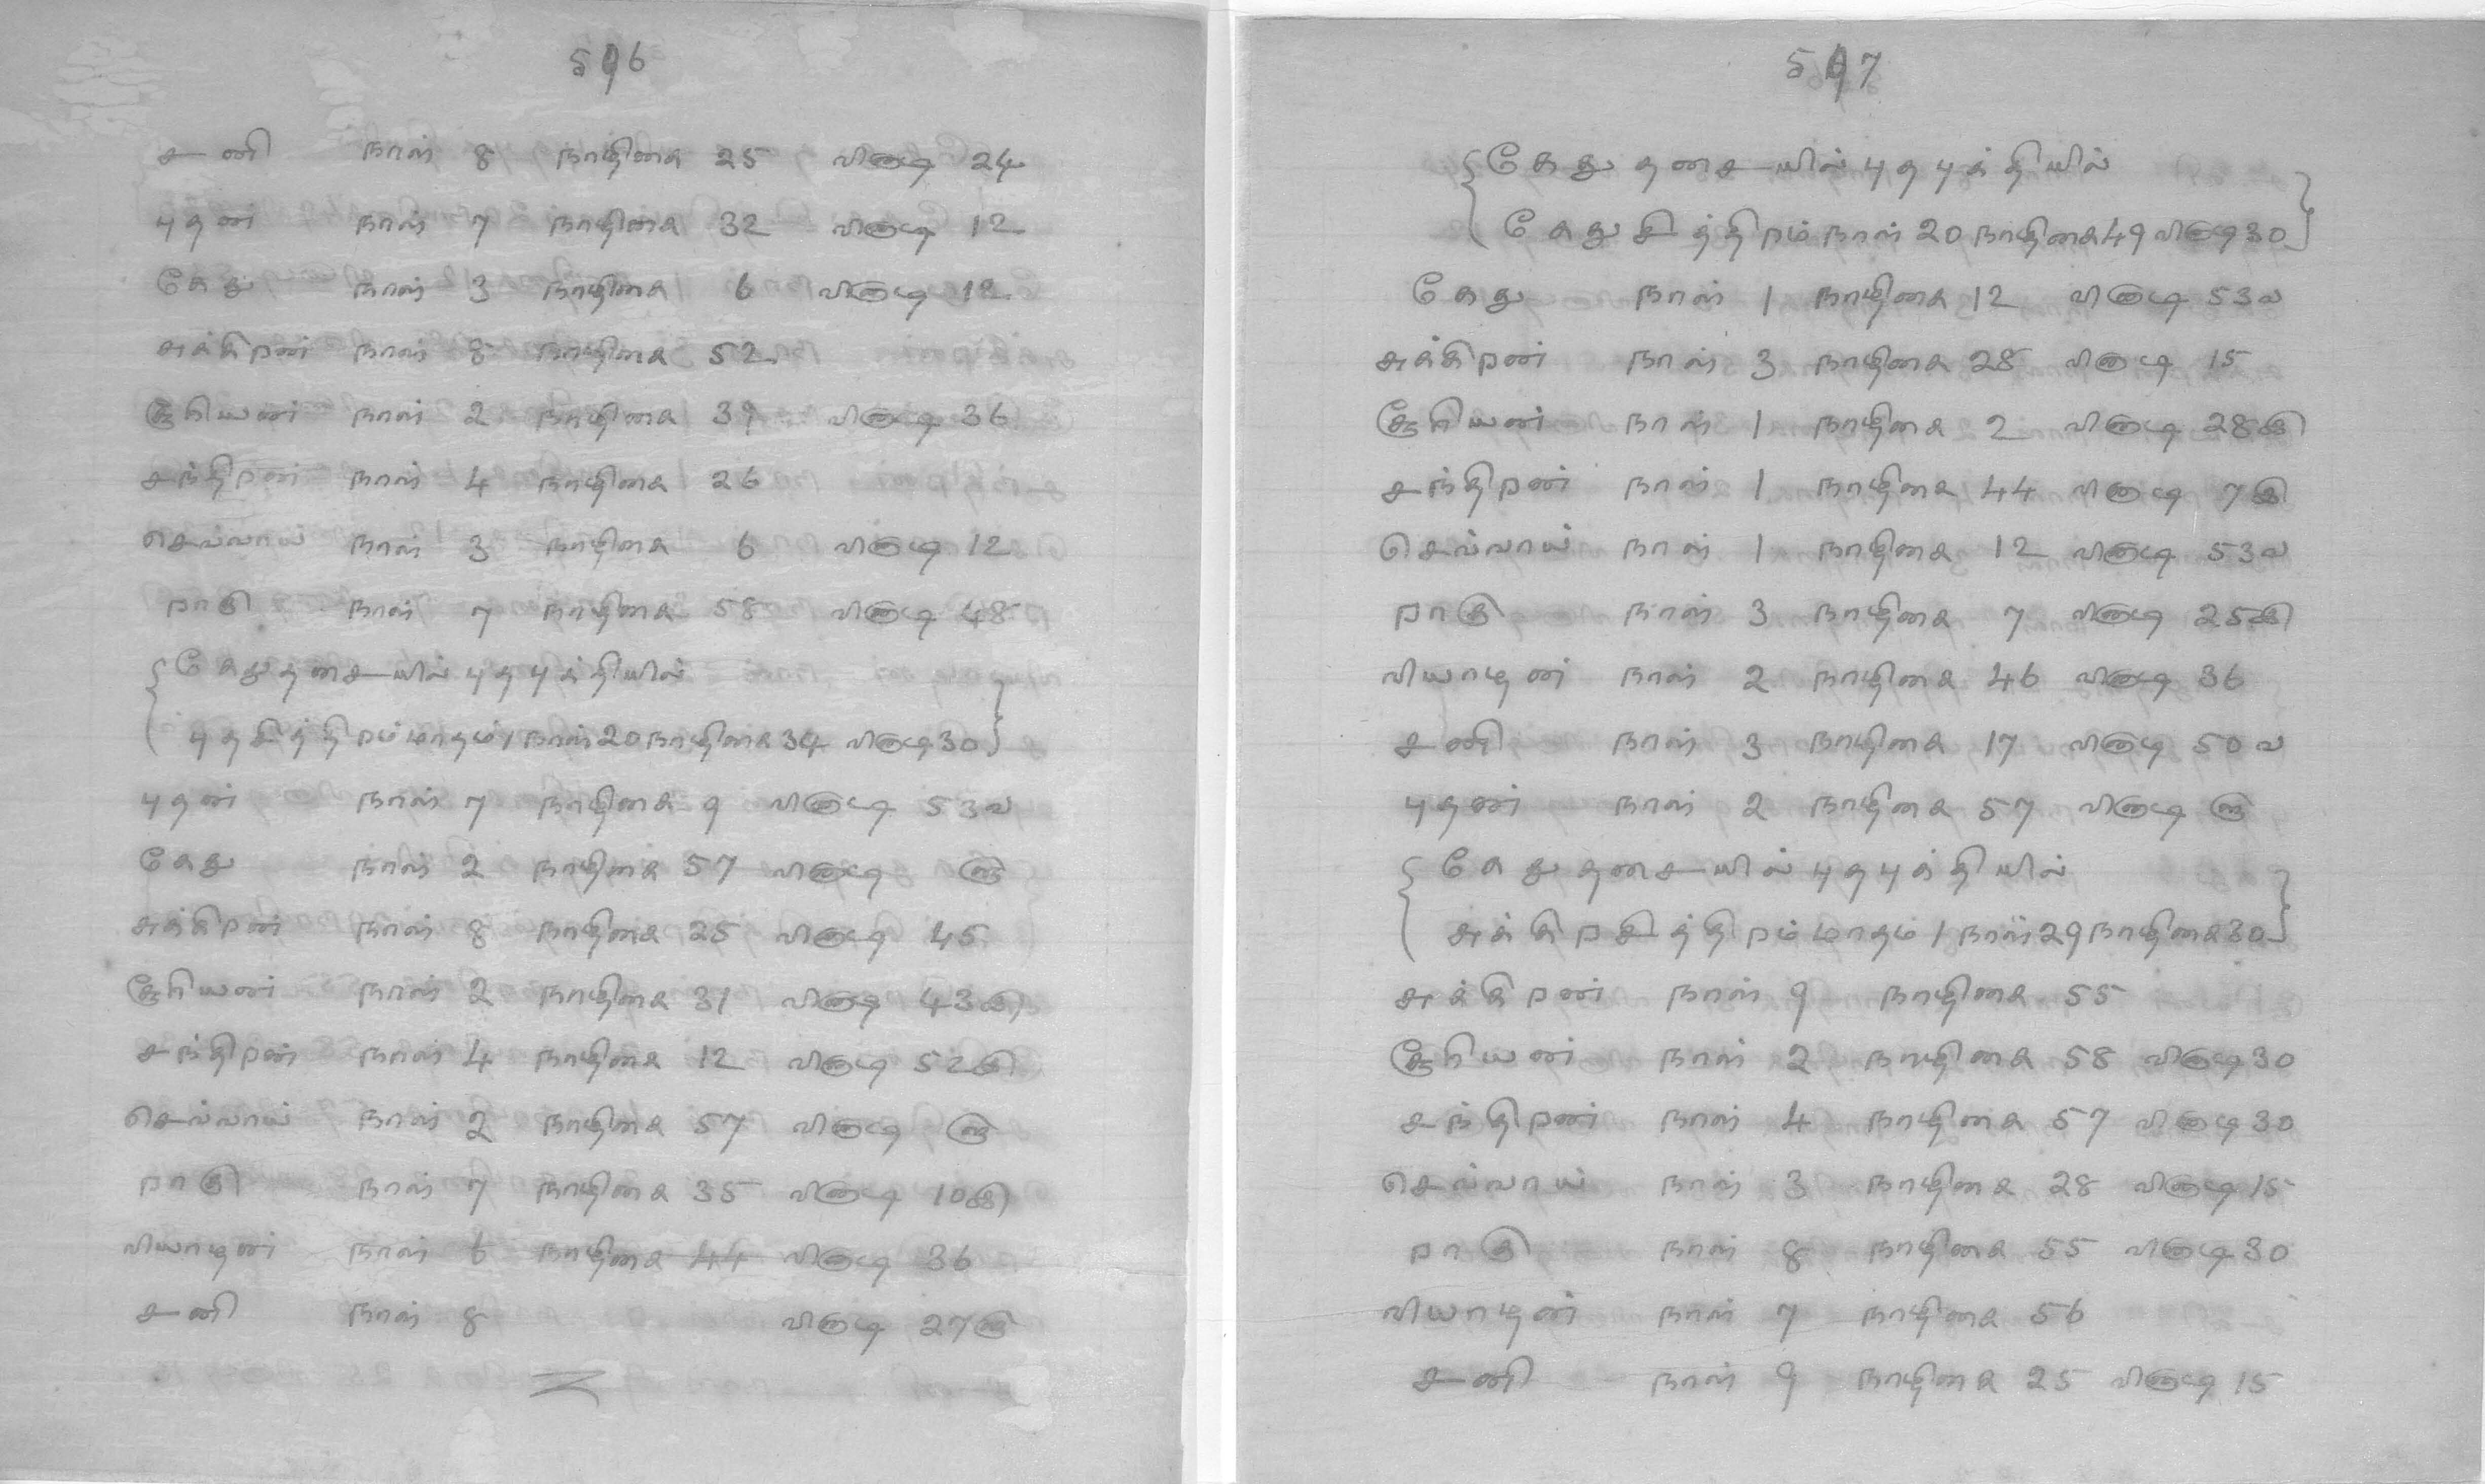 596
சனி நாள் 8 நாழிகை 25 வினாடி 24
புதன் நாள் 7 நாழிகை 32 வினாடி 12
கேது நாள் 3 நாழிகை 6 வினாடி 12
சுக்கிறன் நாள் 8 நாழிகை 52
சூரியன் நாள் 2 நாழிகை 39 வினாடி 36
சந்திறன் நாள் 4 நாழிகை 26
செவ்வாய் நாள் 3 நாழிகை 6 வினாடி 12
றாகு நாள் 7 நாழிகை 58 வினாடி 48
{ கேதுதசையில் புதபுக்தியில்
புதசித்திறம் மாதம் 1 நாள் 20 நாழிகை 34 வினாடி 30 }
புதன் நாள் 7 நாழிகை 9 வினாடி 53வ
கேது நாள் 2 நாழிகை 57 வினாடி ளு
சுக்கிறன் நாள் 8 நாழிகை 25 வினாடி 45
சூரியன் நாள் 2 நாழிகை 31 வினாடி 43இ
சந்திறன் நாள் 4 நாழிகை 12 வினாடி 52இ
செவ்வாய் நாள் 2 நாழிகை 57 வினாடி ளு
றாகு நாள் 7 நாழிகை 35 வினாடி 10இ
வியாழன் நாள் 6 நாழிகை 44 வினாடி 36
சனி நாள் 8 வினாடி 27ளு
597
{ கேது தசையில் புதபுக்தியில்
கேதுசித்திறம் நாள் 20 நாழிகை 49 வினாடி 30 }
கேது நாள் 1 நாழிகை 12 வினாடி 53வ
சுக்கிறன் நாள் 3 நாழிகை 28 வினாடி 15
சூரியன் நாள் 1 நாழிகை 2 வினாடி 28இ
சந்திறன் நாள் 1 நாழிகை 44 வினாடி 7இ
செவ்வாய் நாள் 1 நாழிகை 12 வினாடி 53வ
றாகு நாள் 3 நாழிகை 7 வினாடி 25இ
வியாழன் நாள் 2 நாழிகை 46 வினாடி 36
சனி நாள் 3 நாழிகை 17 வினாடி 50வ
புதன் நாள் 2 நாழிகை 57 வினாடி ளு
{ கேது தசையில் புதபுக்தியில்
சுக்கிறசித்திறம் மாதம் 1 நாள் 29 நாழிகை 30 }
சுக்கிறன் நாள் 9 நாழிகை 55
சூரியன் நாள் 2 நாழிகை 58 வினாடி 30
சந்திறன் நாள் 4 நாழிகை 57 வினாடி 30
செவ்வாய் நாள் 3 நாழிகை 28 வினாடி 15
றாகு நாள் 8 நாழிகை 55 வினாடி 30
வியாழன் நாள் 7 நாழிகை 56
சனி நாள் 9 நாழிகை 25 வினாடி 15